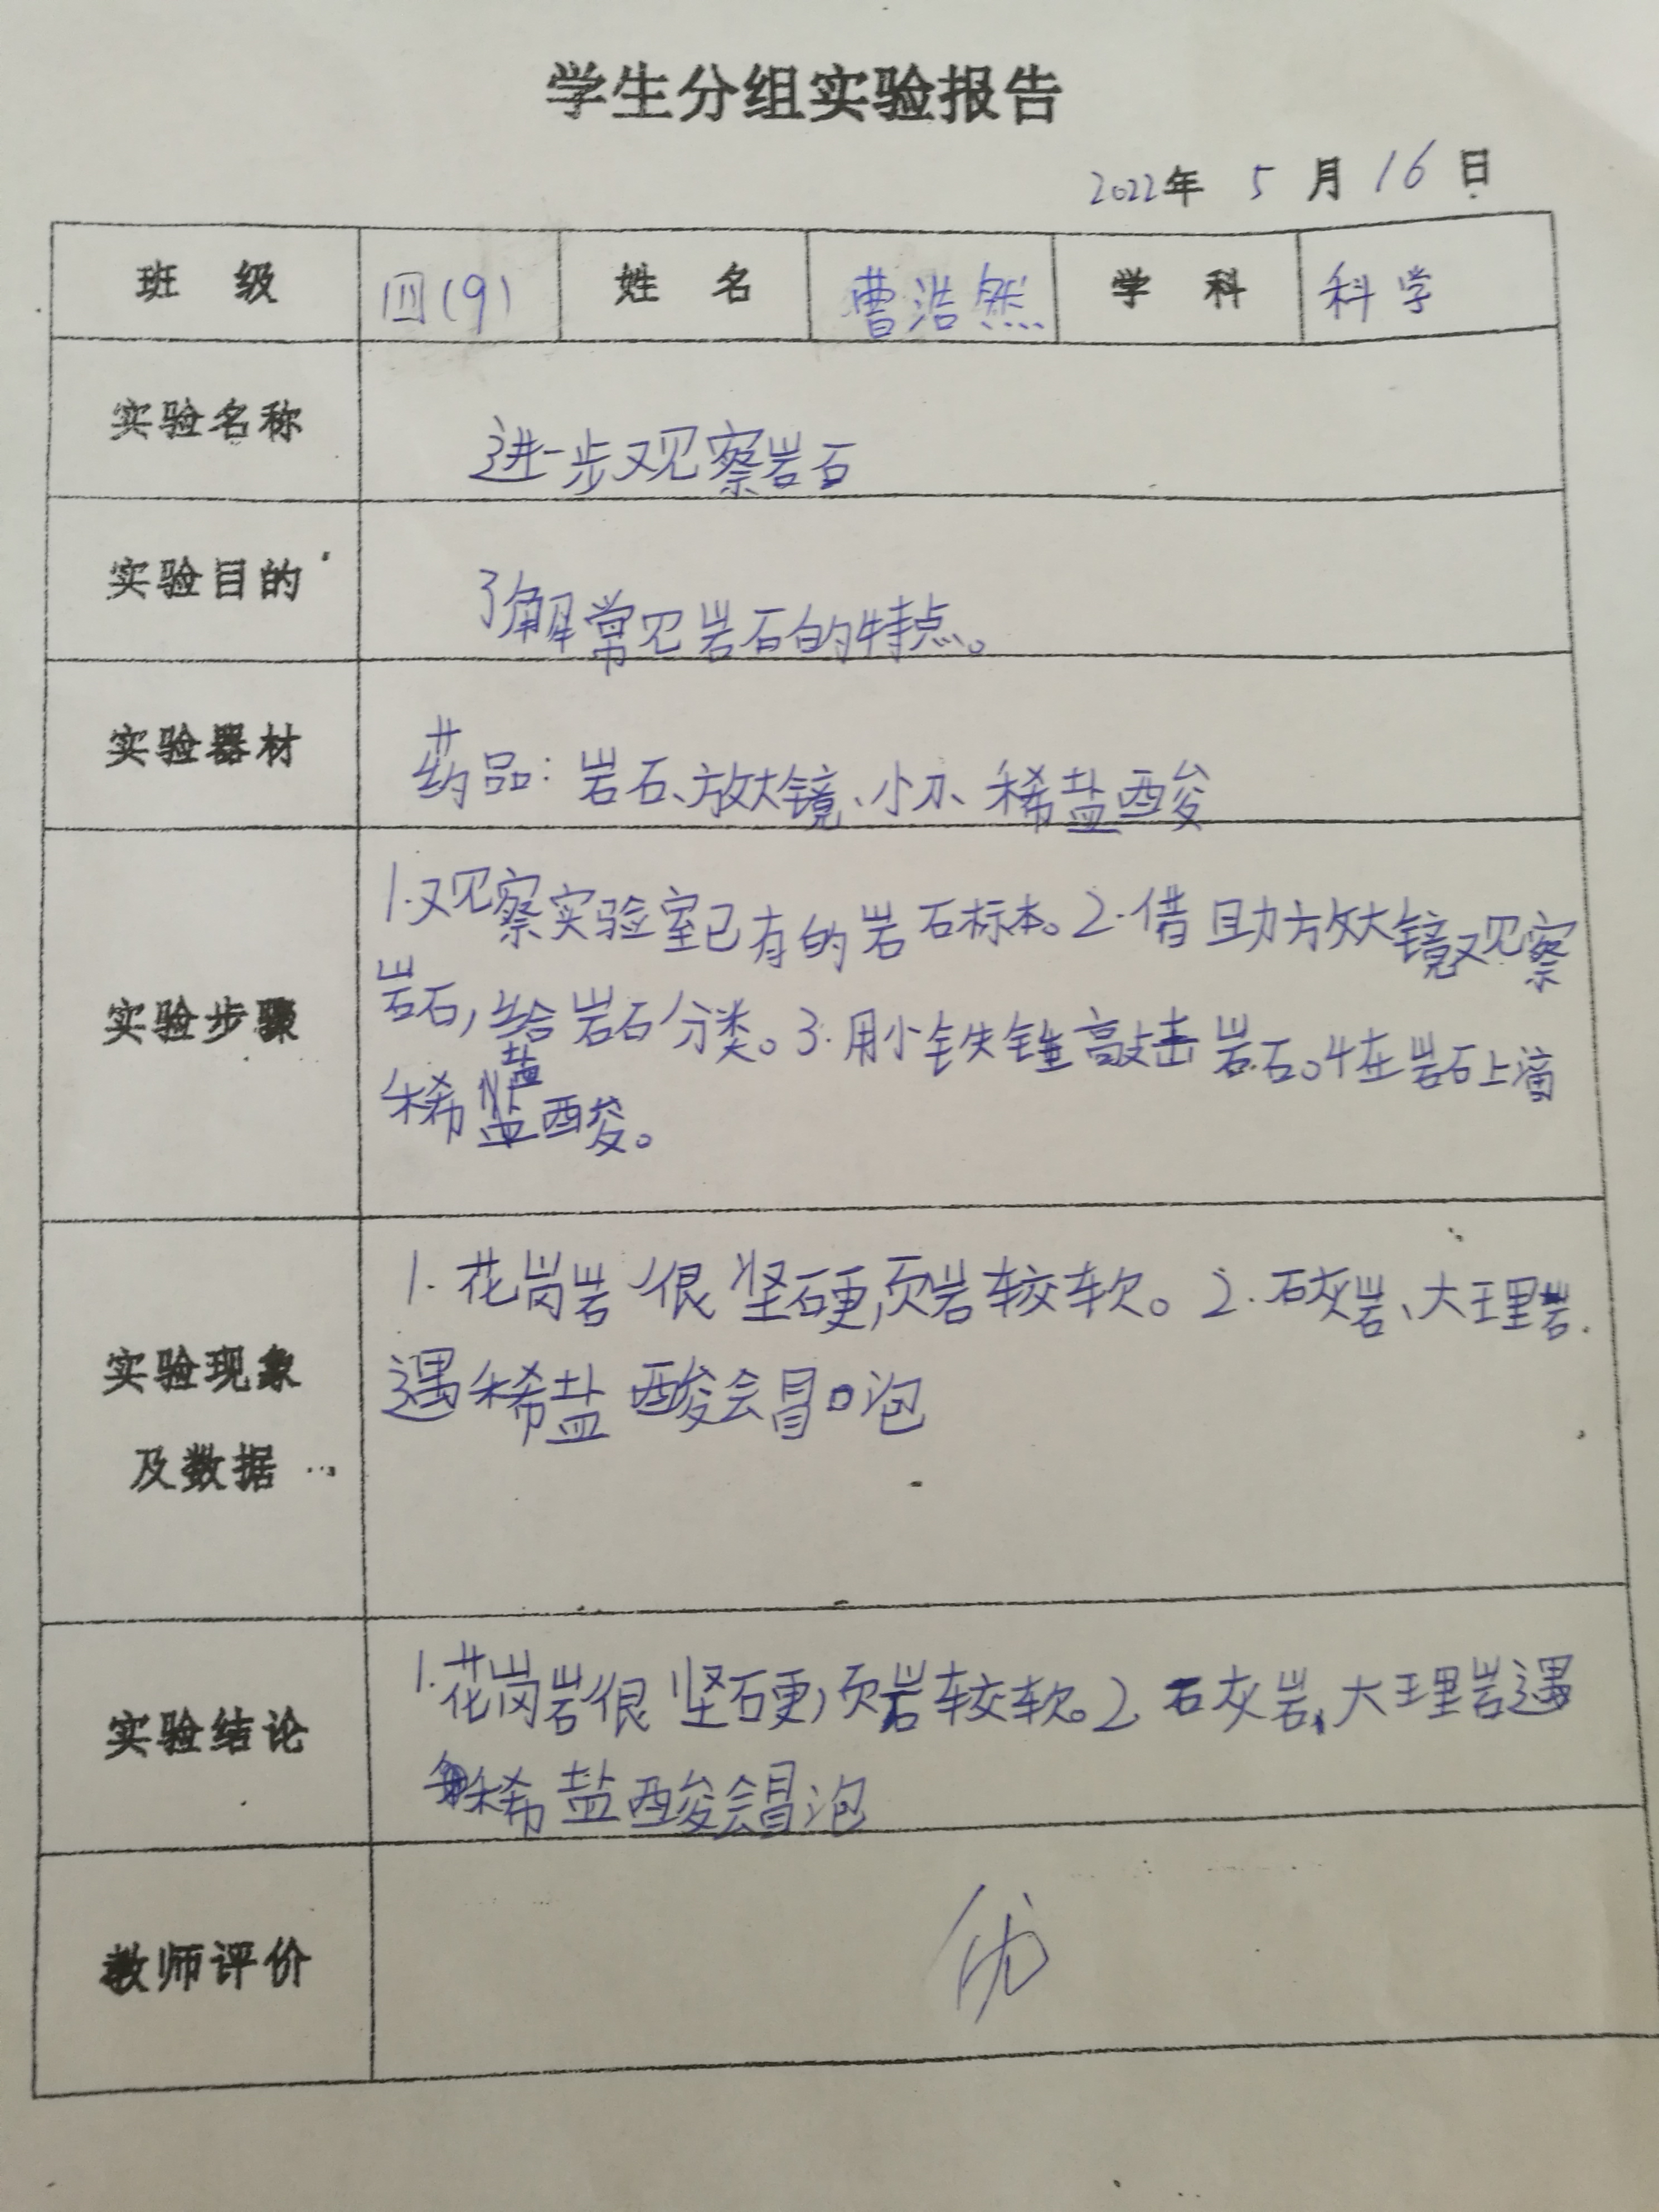 学生分组实验报告
2022年 5 月 16 日
班 级 四(9) 姓 名 曹浩然 学 科 科学
实验名称 进一步观察岩石
实验目的 了解常见岩石的特点。
实验器材 药品：岩石、放大镜、小刀、稀盐酸
实验步骤
1.观察实验室已有的岩石标本。2.借助放大镜观察
岩石，给岩石分类。3.用小铁锤敲击岩石。4在岩石上滴
稀盐酸。
实验现象
及数据
1.花岗岩很坚硬，页岩较软。2.石灰岩、大理岩
遇稀盐酸会冒泡
实验结论
1.花岗岩很坚硬，页岩较软。2 石灰岩、大理岩遇
稀盐酸会冒泡
教师评价 优